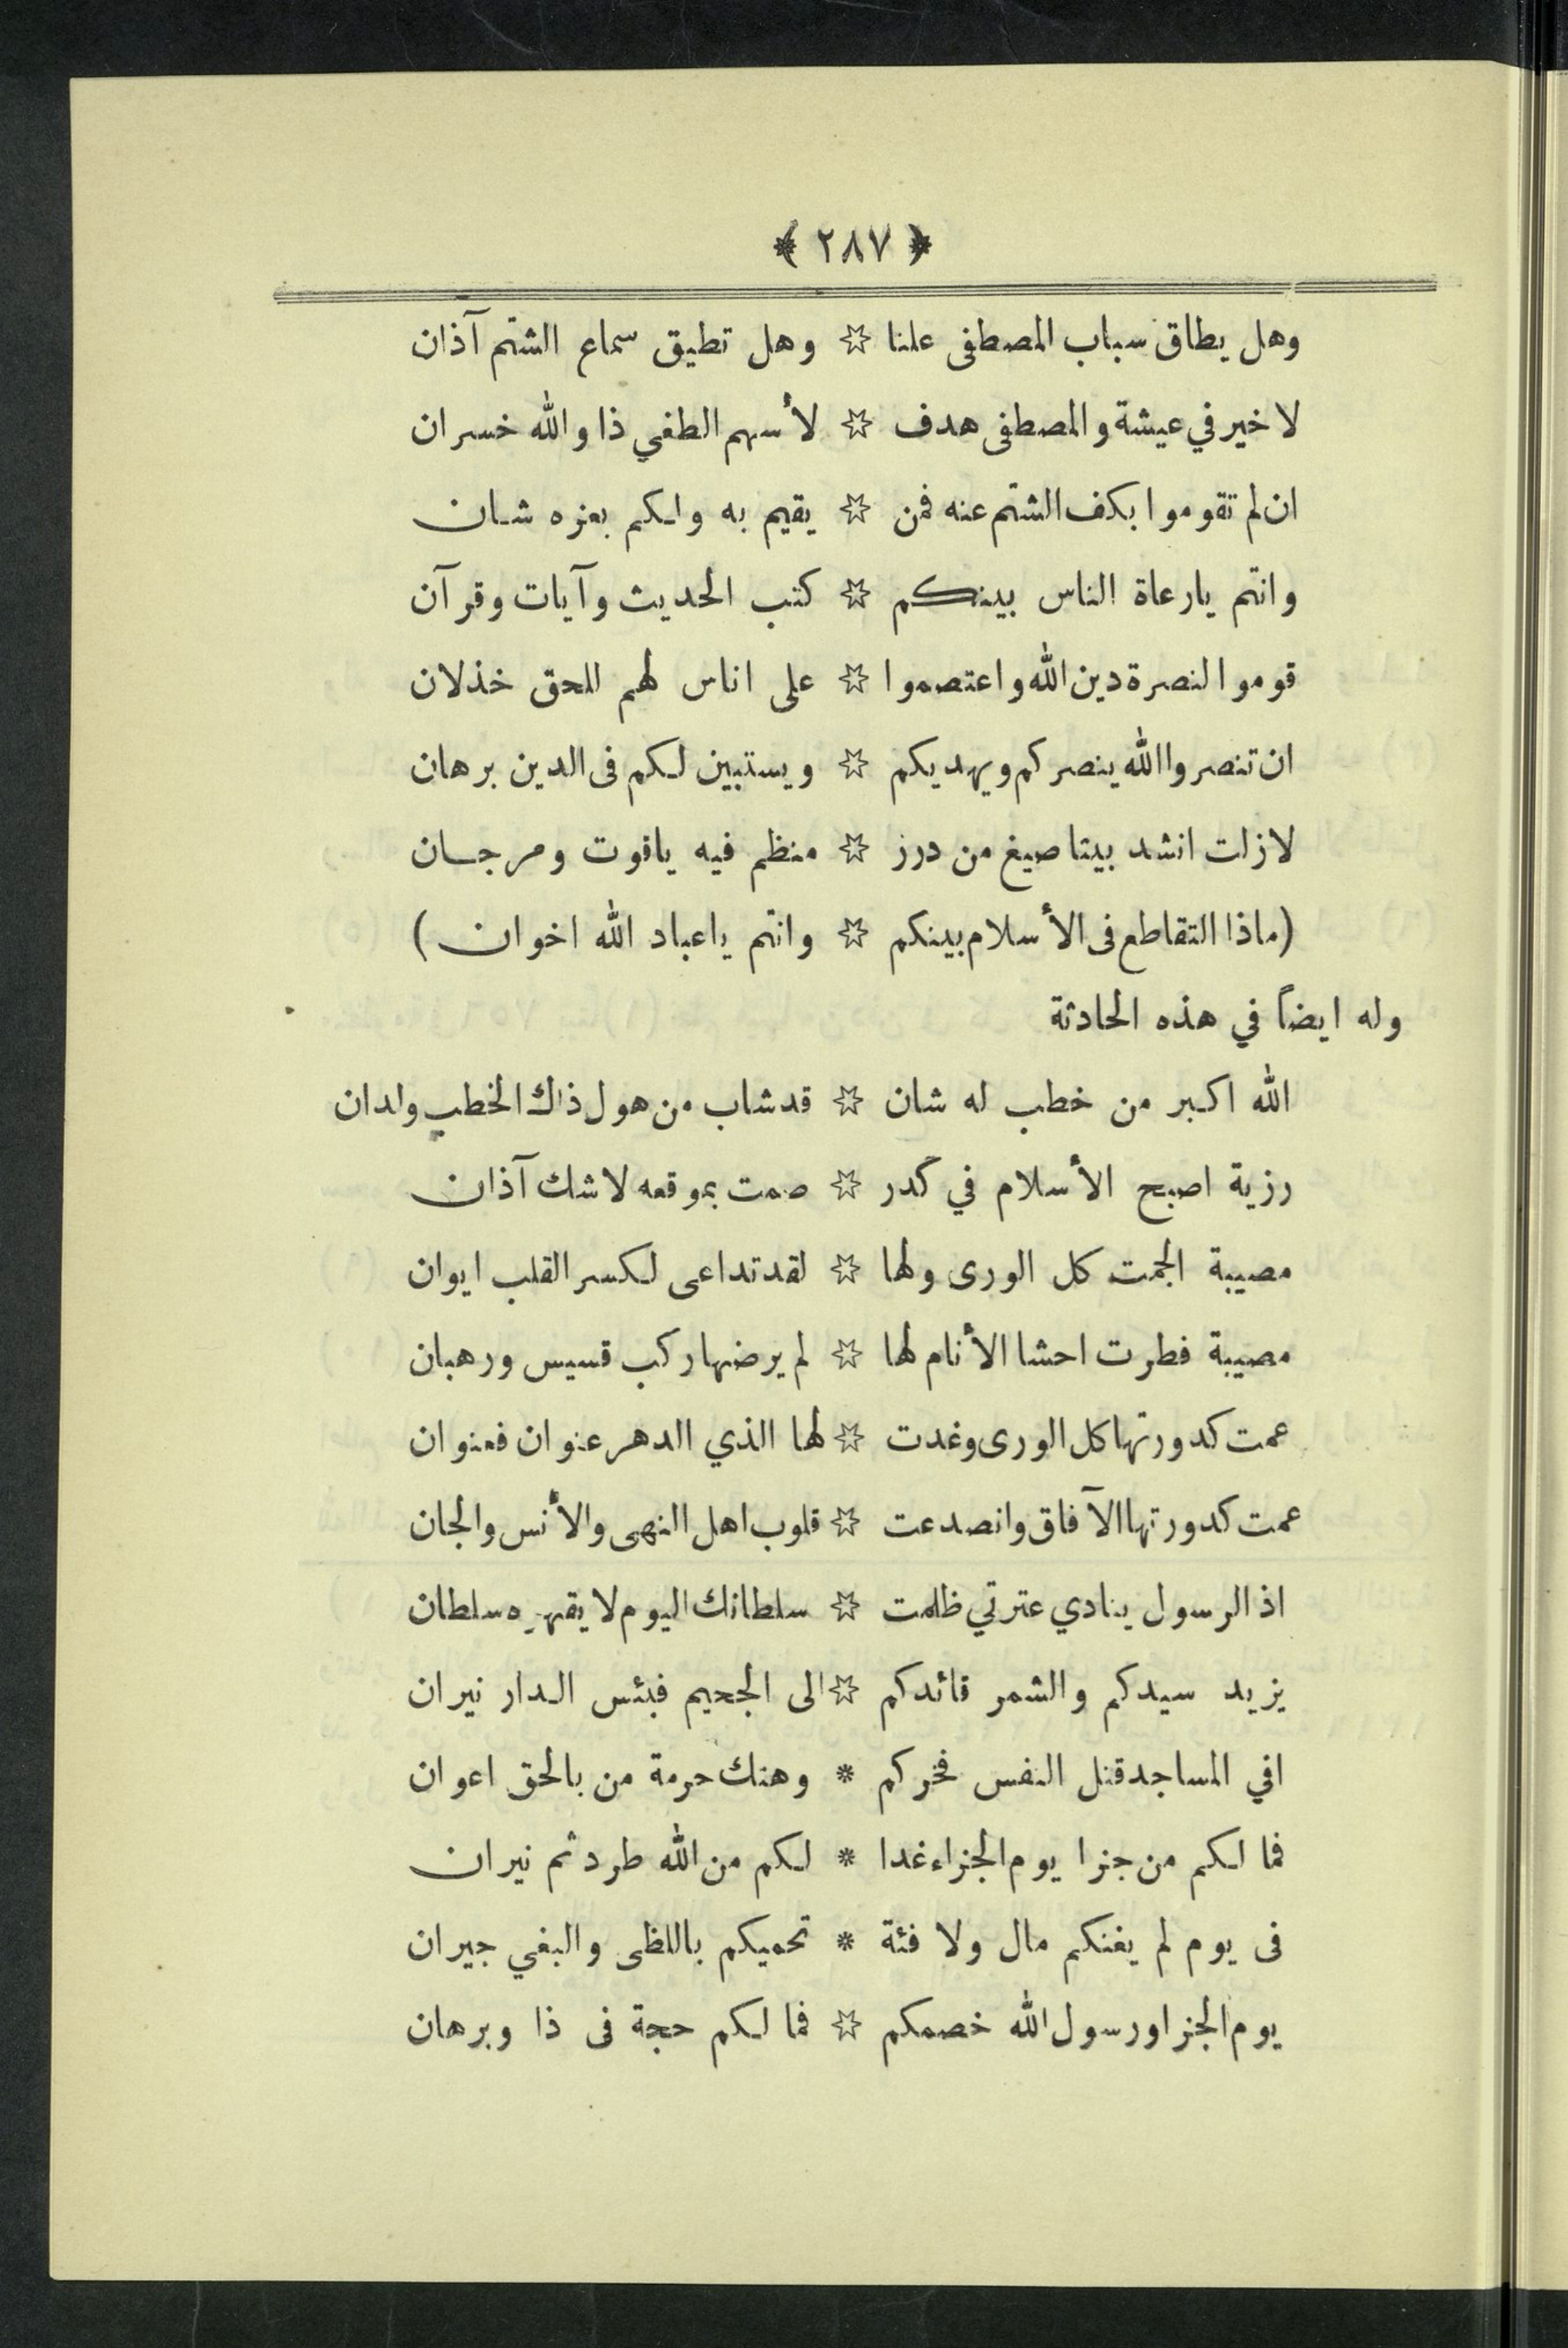 ﴿ ٢٨٧ ﴾
وهل يطاق سباب المصطفى علنا ☆ وهل تطيق سماع الشتم آذان
لا خير في عيشة والمصطفى هدف ☆ لأسهم الطغي ذا والله خسران
ان لم تقوموا بكف الشتم عنه فمن ☆ يقيم به ولكم بعزه شان
وانتم يارعاة الناس بينكم ☆ كتب الحديث وآيات وقرآن
قوموا لنصرة دين الله واعتصموا ☆ على اناس لهم للحق خذلان
ان تنصروا الله ينصركم ويهديكم ☆ ويستبين لكم فى الدين برهان
لازلت انشد بيتا صيغ من درز ☆ منظم فيه ياقوت ومرجان
(ماذا التقاطع فى الأسلام بينكم ☆ وانتم ياعباد الله اخوان)
وله ايضاً في هذه الحادثة
الله اكبر من خطب له شان ☆ قد شاب من هول ذاك الخطب ولدان
رزية اصبح الأسلام في كدر ☆ صمت بموقعه لاشك آذان
مصيبة الجمت كل الورى ولها ☆ لقد تداعى لكسر القلب ايوان
مصيبة فطرت احشا الأنام لها ☆ لم يرضها ركب قسيس ورهبان
عمت كدورتها كل الورى وغدت ☆ لها الذي الدهر عنوان فعنوان
عمت كدورتها الآفاق وانصدعت ☆ قلوب اهل النهى والأنس والجان
اذ الرسول ينادي عترتي ظلمت ☆ سلطانك اليوم لا يقهره سلطان
يزيد سيدكم والشمر قائدكم ☆ الى الجحيم فبئس الدار نيران
افي المساجد قتل النفس فخركم * وهتك حرمة من بالحق اعوان
فما لكم من جزا يوم الجزاء غدا * لكم من الله طرد ثم نيران
فى يوم لم يغنكم مال ولا فئة * تحميكم باللظى والبغي جيران
يوم الجزا ورسول الله خصمكم ☆ فما لكم حجة فى ذا وبرهان